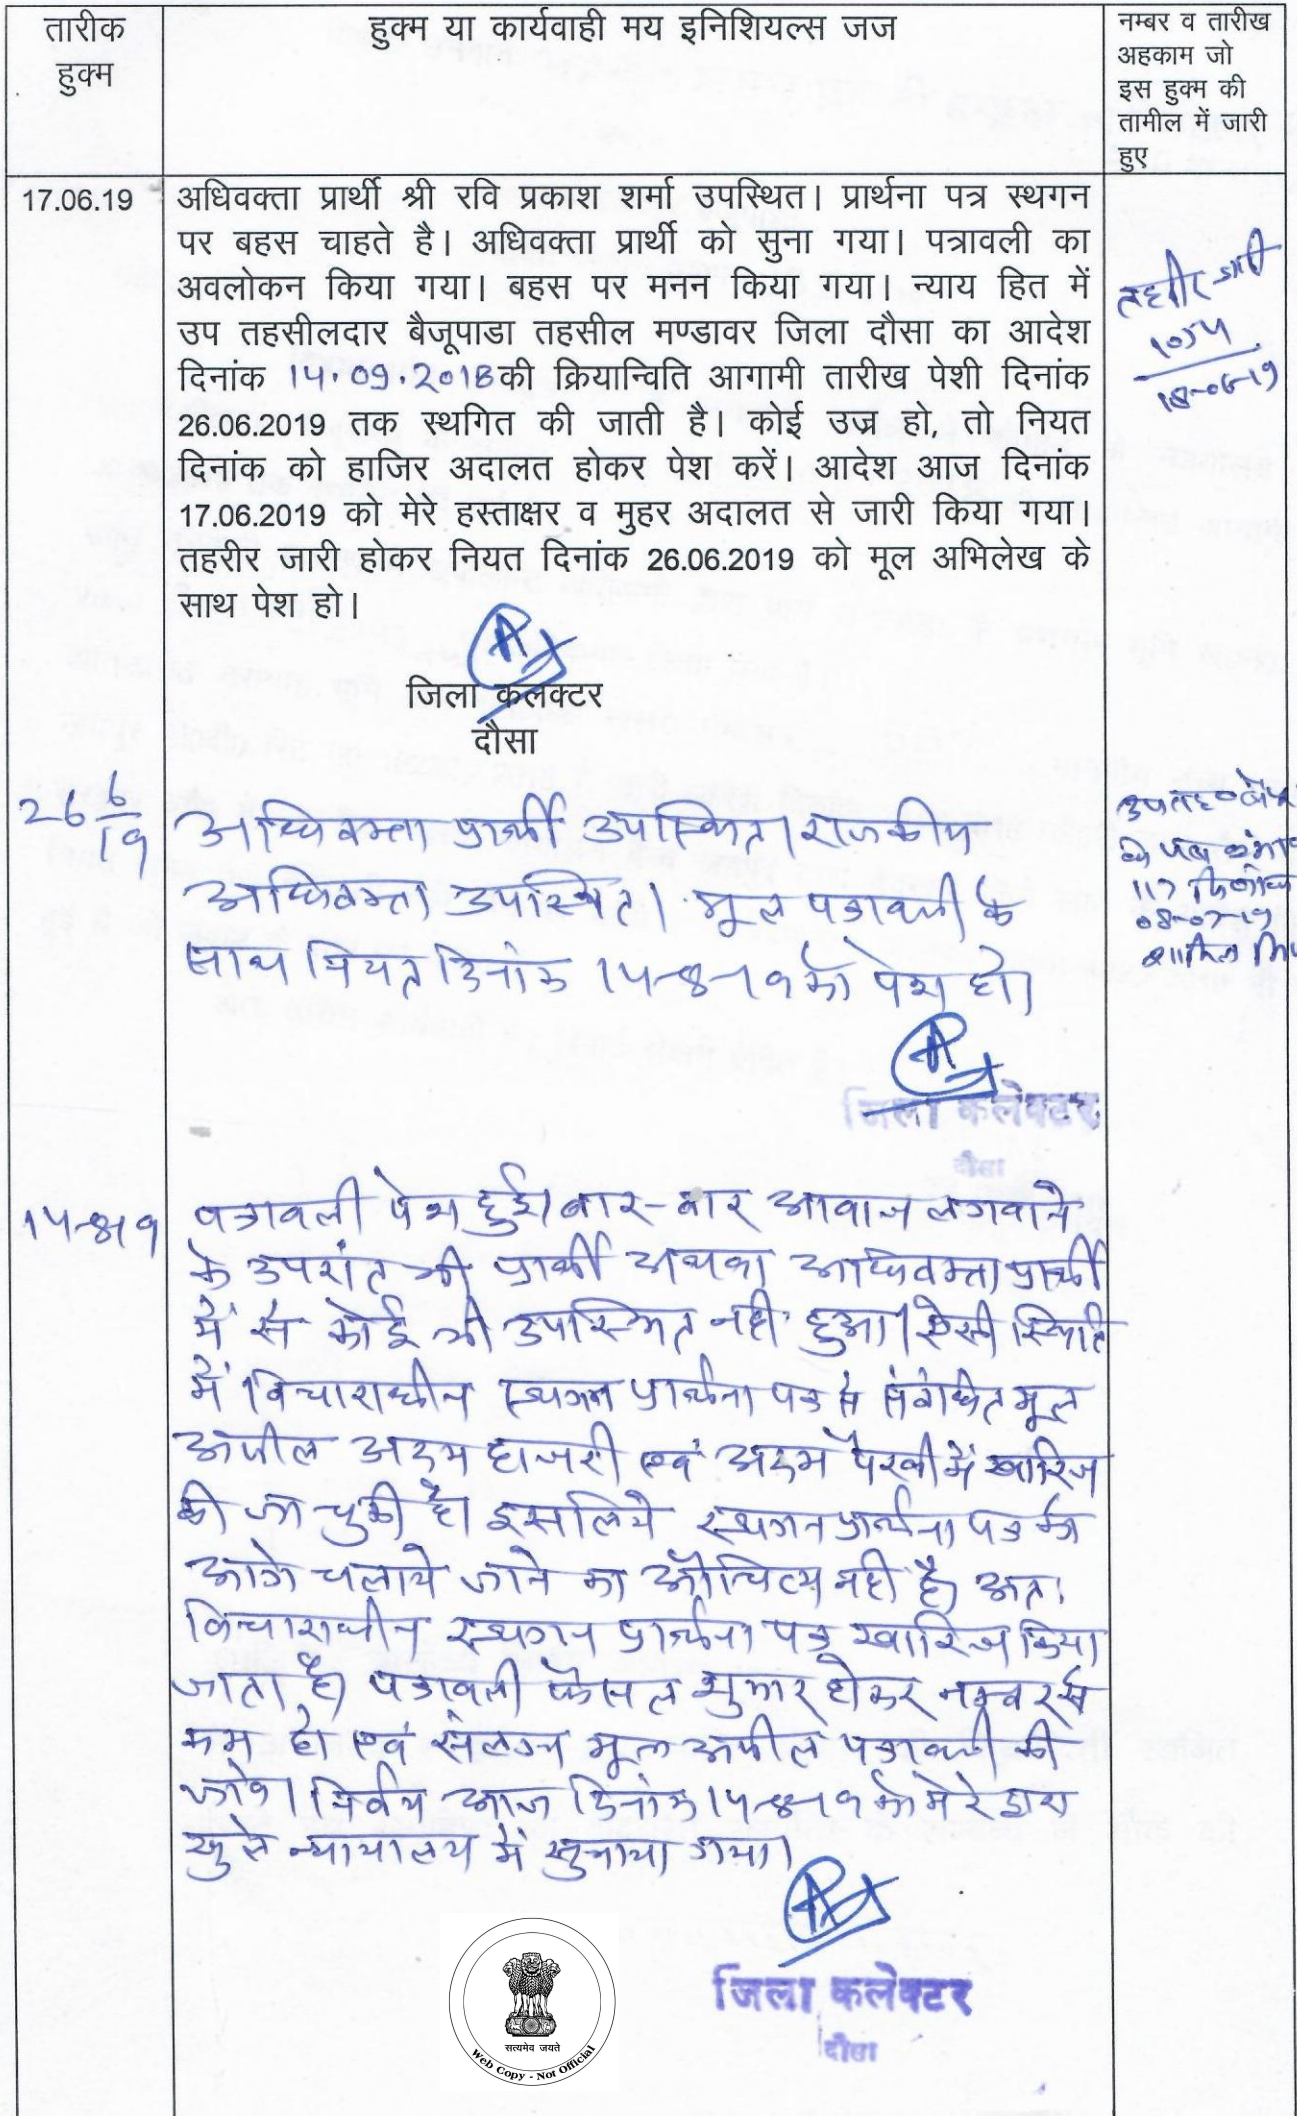 तारीक
हुक्म
हुक्म या कार्यवाही मय इनिशियल्स जज
नम्बर व तारीख
अहकाम जो
इस हुक्म की
तामील में जारी
हुए
17.06.19
अधिवक्ता प्रार्थी श्री रवि प्रकाश शर्मा उपस्थित। प्रार्थना पत्र स्थगन
पर बहस चाहते है। अधिवक्ता प्रार्थी को सुना गया। पत्रावली का
अवलोकन किया गया। बहस पर मनन किया गया। न्याय हित में
उप तहसीलदार बैजूपाडा तहसील मण्डावर जिला दौसा का आदेश
दिनांक 14.09.2018 की क्रियान्विति आगामी तारीख पेशी दिनांक
26.06.2019 तक स्थगित की जाती है। कोई उज्र हो, तो नियत
दिनांक को हाजिर अदालत होकर पेश करें। आदेश आज दिनांक
17.06.2019 को मेरे हस्ताक्षर व मुहर अदालत से जारी किया गया।
तहरीर जारी होकर नियत दिनांक 26.06.2019 को मूल अभिलेख के
साथ पेश हो।
तहरीर जारी
1054
18-06-19
जिला कलक्टर
दौसा
26 6/19
अधिवक्ता प्रार्थी उपस्थित। राजकीय
अधिवक्ता उपस्थित। मूल पत्रावली के
साथ नियत दिनांक 14-8-19 को पेश हो।
उपतह०
117 दिनांक
08-07-19
शामिल
जिला कलेक्टर
दौसा
14-8-19
पत्रावली पेश हुई। बार-बार आवाज लगवाने
के उपरांत भी प्रार्थी अथवा अधिवक्ता प्रार्थी
में से कोई भी उपस्थित नही हुआ। ऐसी स्थिति
में विचाराधीन स्थगन प्रार्थना पत्र से संबंधित मूल
अपील अदम हाजरी एवं अदम पैरवी में खारिज
की जा चुकी है। इसलिये स्थगन प्रार्थना पत्र को
आगे चलाये जाने का औचित्य नही है। अतः
विचाराधीन स्थगन प्रार्थना पत्र खारिज किया
जाता है। पत्रावली फैसल शुमार होकर नम्बर से
कम हो एवं संलग्न मूल अपील पत्रावली की
जावे। निर्णय आज दिनांक 14-8-19 को मेरे द्वारा
खुले न्यायालय में सुनाया गया।
जिला कलेक्टर
दौसा
सत्यमेव जयते
Web Copy - Not Official